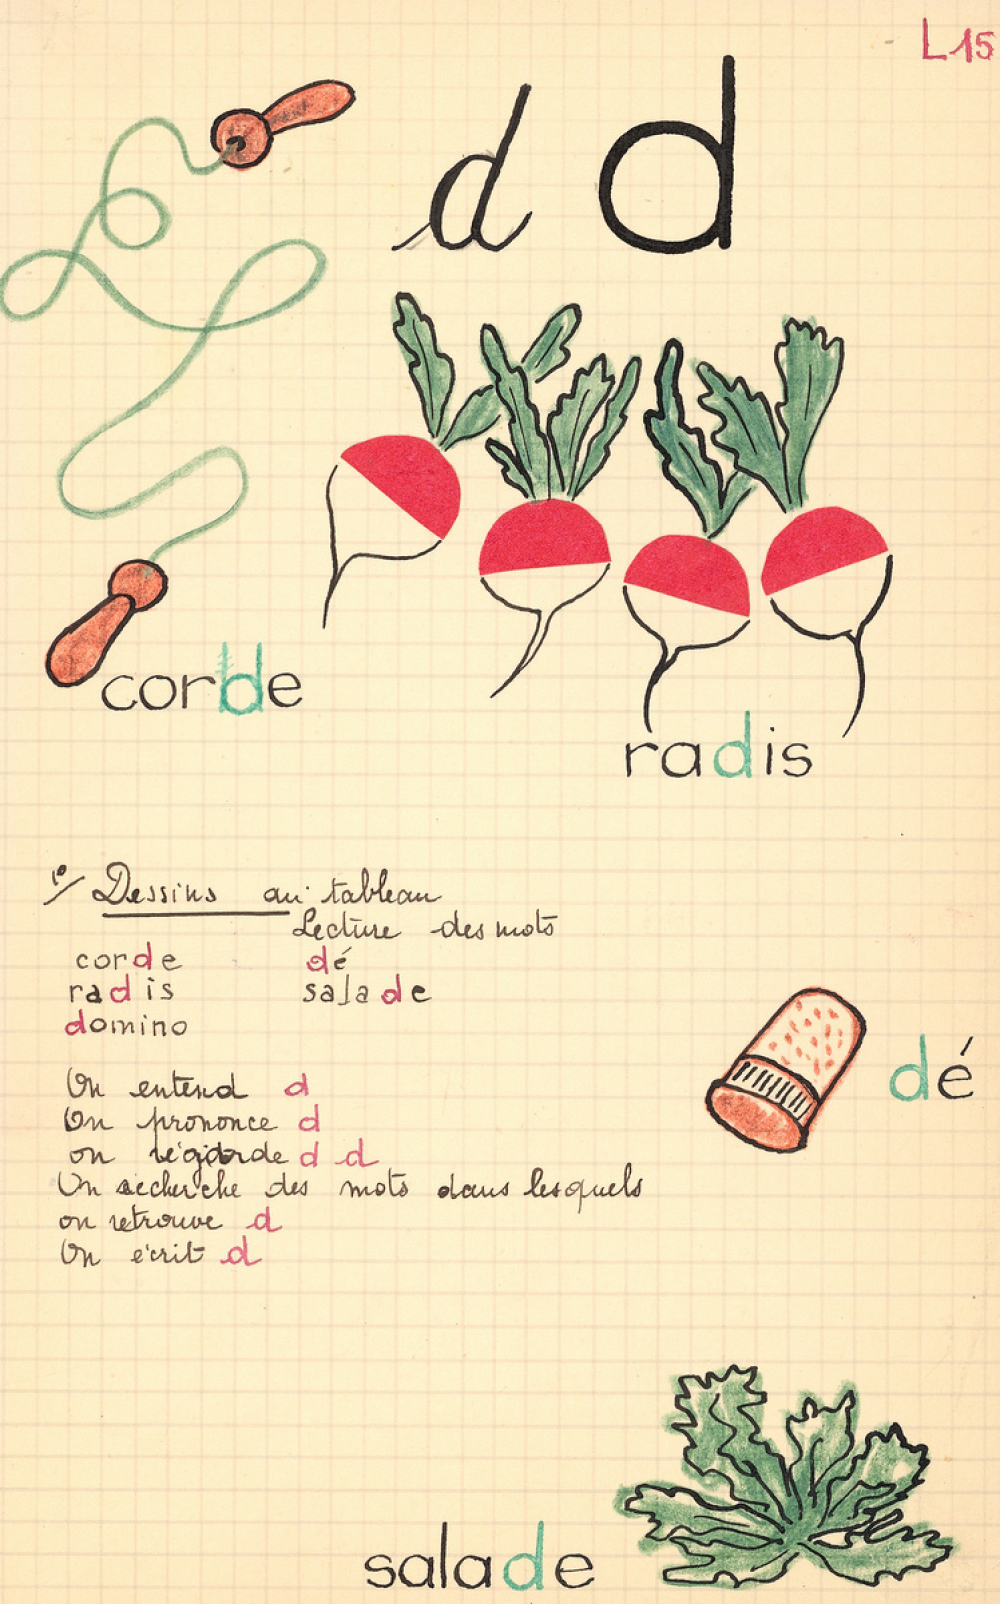 L 15
d d
corde
radis
1º/ Dessins au tableau
Lecture des mots
corde dé
radis salade
domino
On entend d
On prononce d
on regarde d d
On recherche des mots dans lesquels
on retrouve d
On écrit d
dé
salade